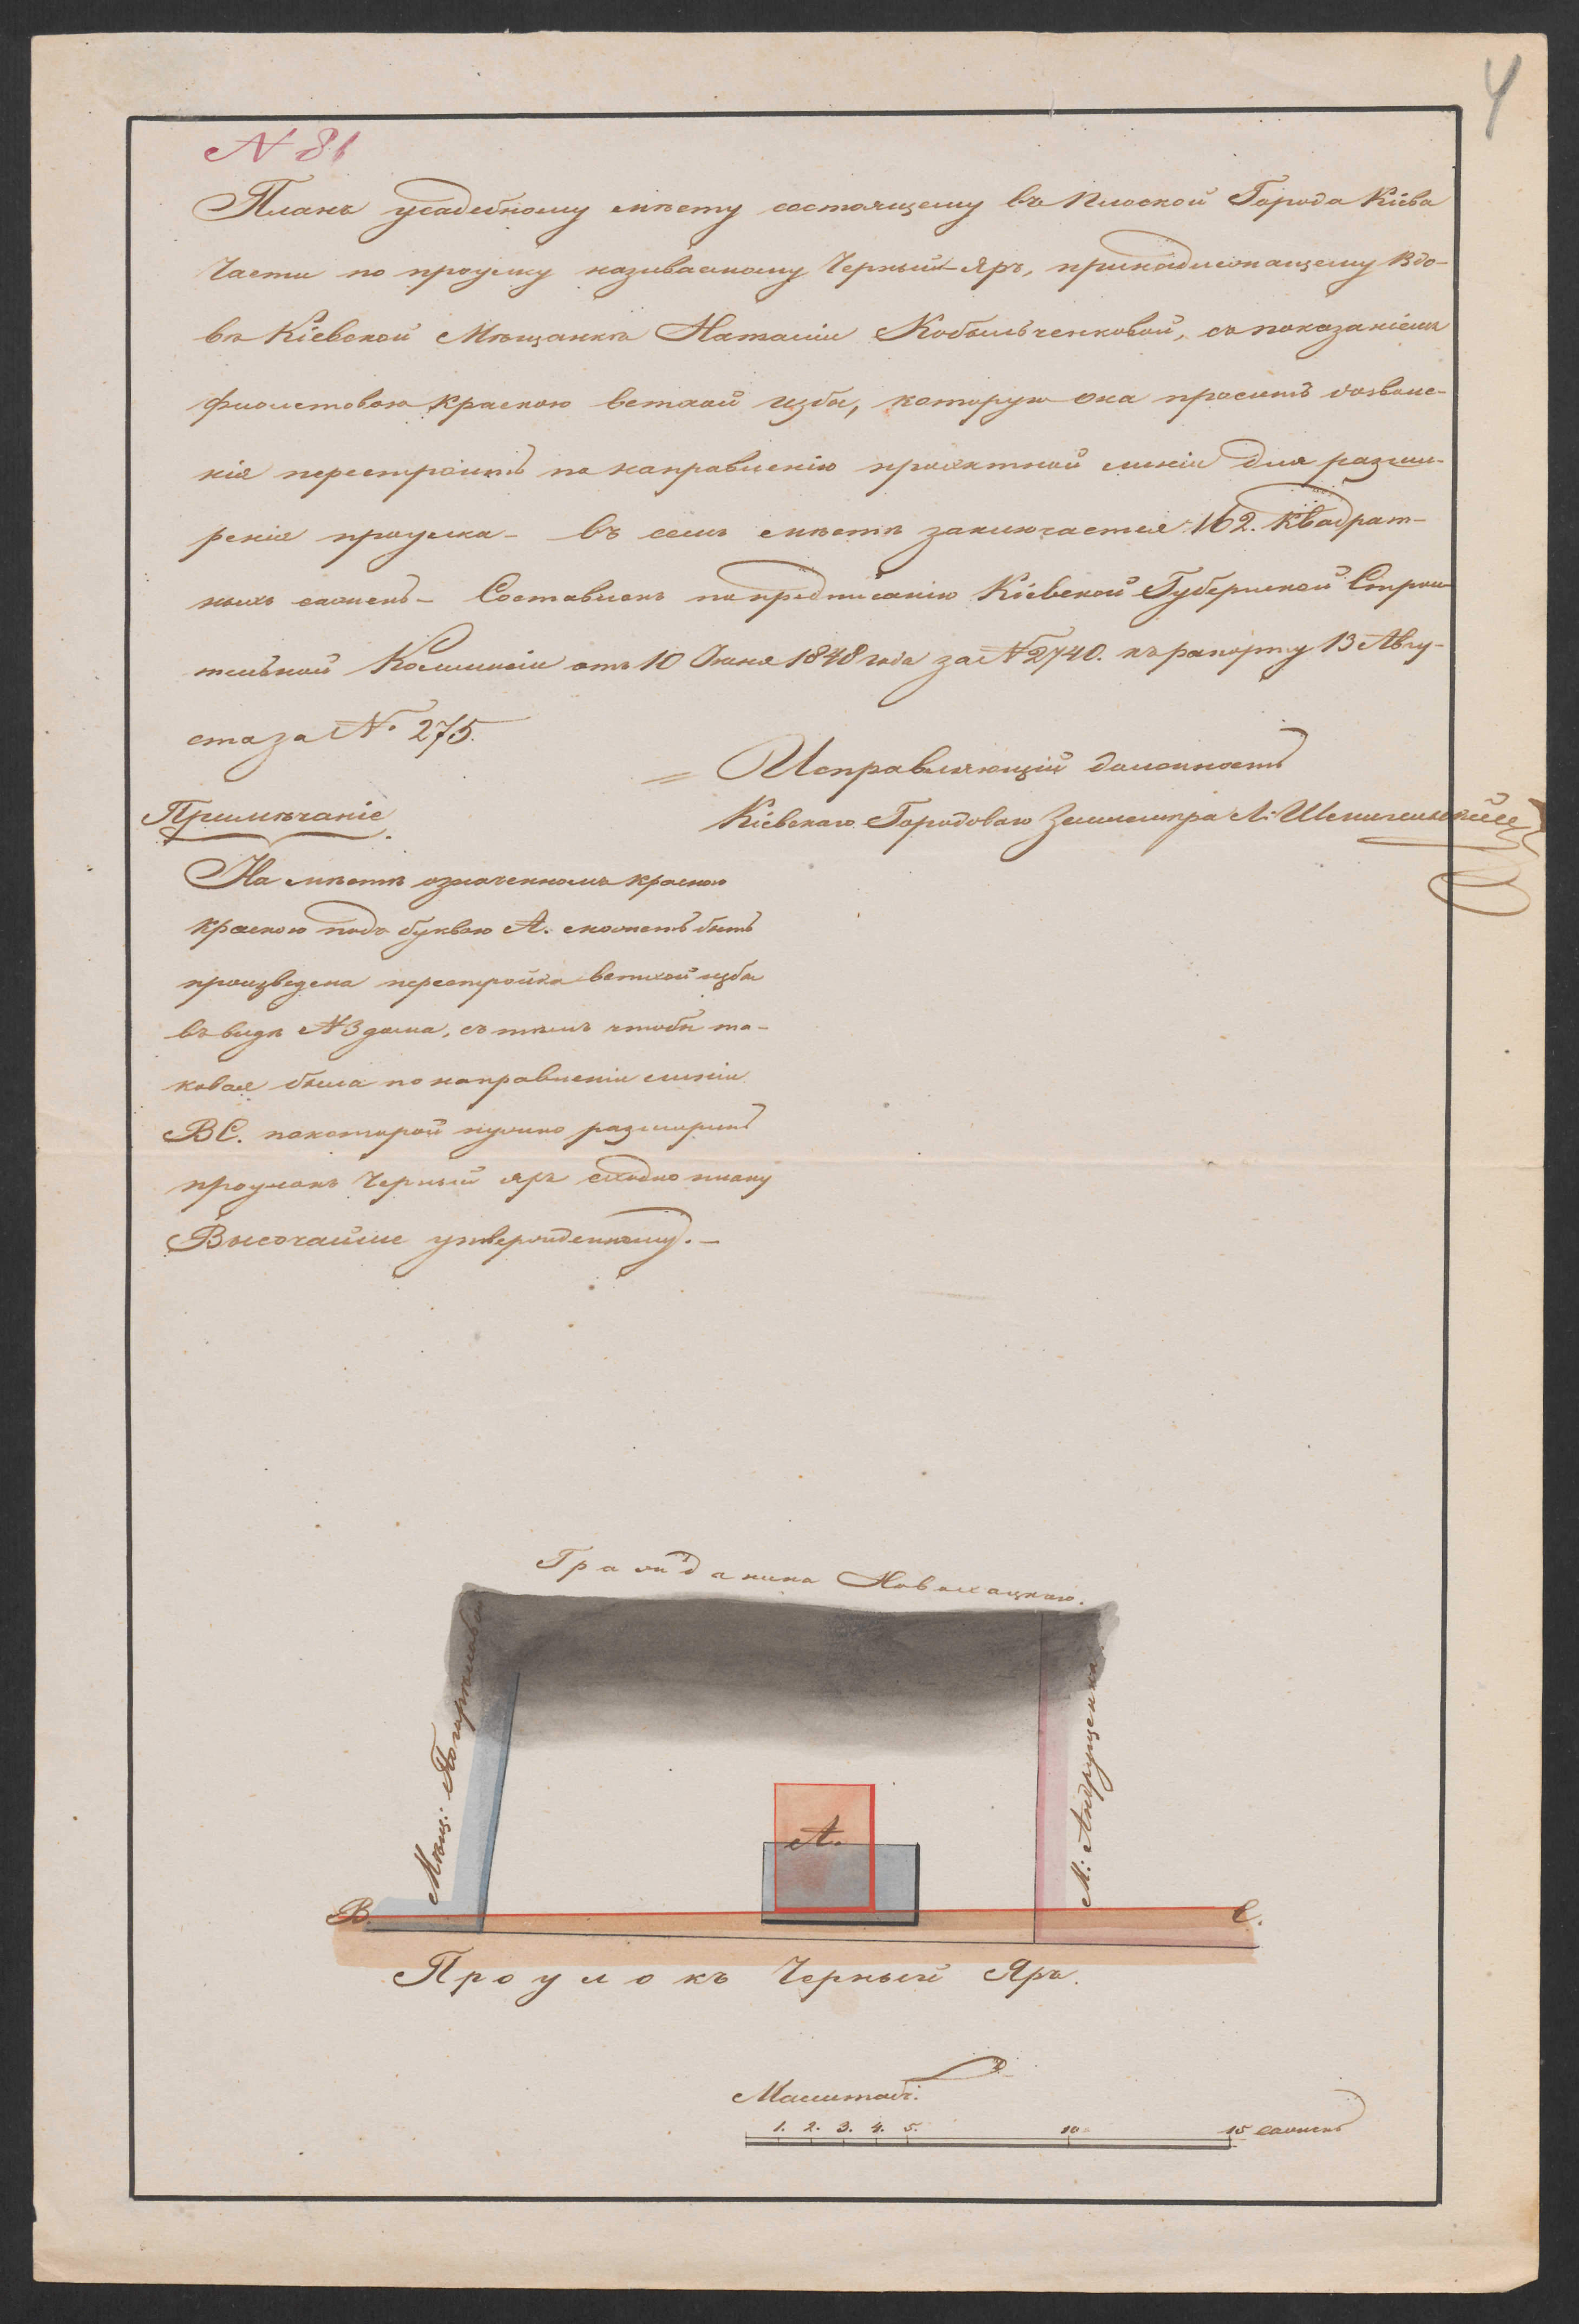 4
N 81
Планъ усадебному мѣсту состоящему въ Плоской Города Кіева
Части по проулку называемому Черный-Яръ, принадлежащему Вдо-
вѣ Кіевской Мѣщанкѣ Наталіи Кобыльченковой, съ показаніемъ
фіолетовою краскою ветхой избы, которую она проситъ дозволе-
нія перестроить по направленію проэктной линіи для разши-
ренія проулка - въ семъ мѣстѣ заключается 162. Квадрат-
ныхъ сажень - Составленъ по предписанію Кіевской Губернской Строи
тельной Коммисіи отъ 10 Іюня 1848 года за № 2740. къ рапорту 13 Авгу-
ста за № 275.
Исправляющій должность
Кіевскаго Городоваго Землемѣра Л:
Примѣчаніе
На мѣстѣ означенномъ красною
краскою подъ буквою А. можетъ быть
произведена перестройка ветхой избы
въ видѣ №3 дома, съ тѣмъ чтобы та-
ковая была по направленіи линіи
ВС. по которой нужно разширить
проулокъ Черный яръ сходно плану
Высочайше утвержденному. -
Гражданина
Мѣщ:
М: Андрущенка
А.
В.
С.
Проулокъ Черный Яръ.
Масштабъ.
1. 2. 3. 4. 5. 10 15 сажень